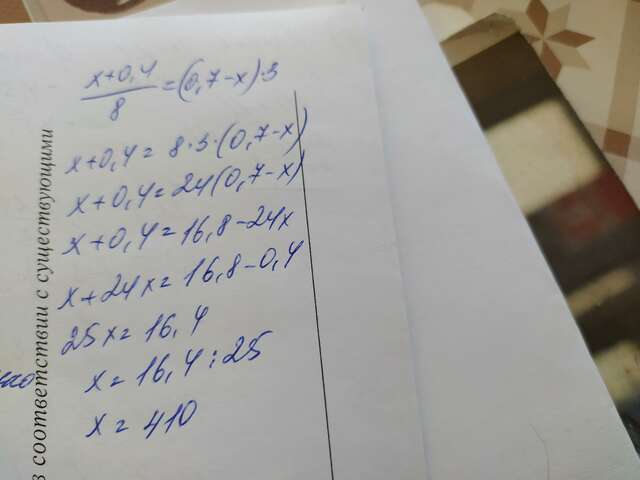 x+0,4/8=(0,7-x)·3
x+0,4=8·3·(0,7-x)
x+0,4=24(0,7-x)
x+0,4=16,8-24x
x+24x=16,8-0,4
25x=16,4
x=16,4:25
x=410
в соответствии с существующими